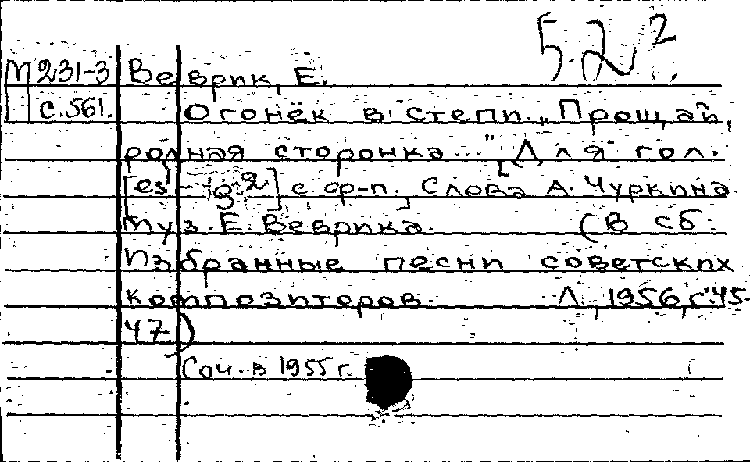 5.2.2
М 231-3 Веврик, Е.
с.561. Огонёк в степи. „Прощай,
родная сторонка..." [Для гол.
[es¹ - g²] с ф-п.] Слова А. Чуркина
Муз. Е. Веврика. (В сб.
Избранные песни советских
композиторов. Л., 1956, с.45-
47)
Соч. в 1955 г.